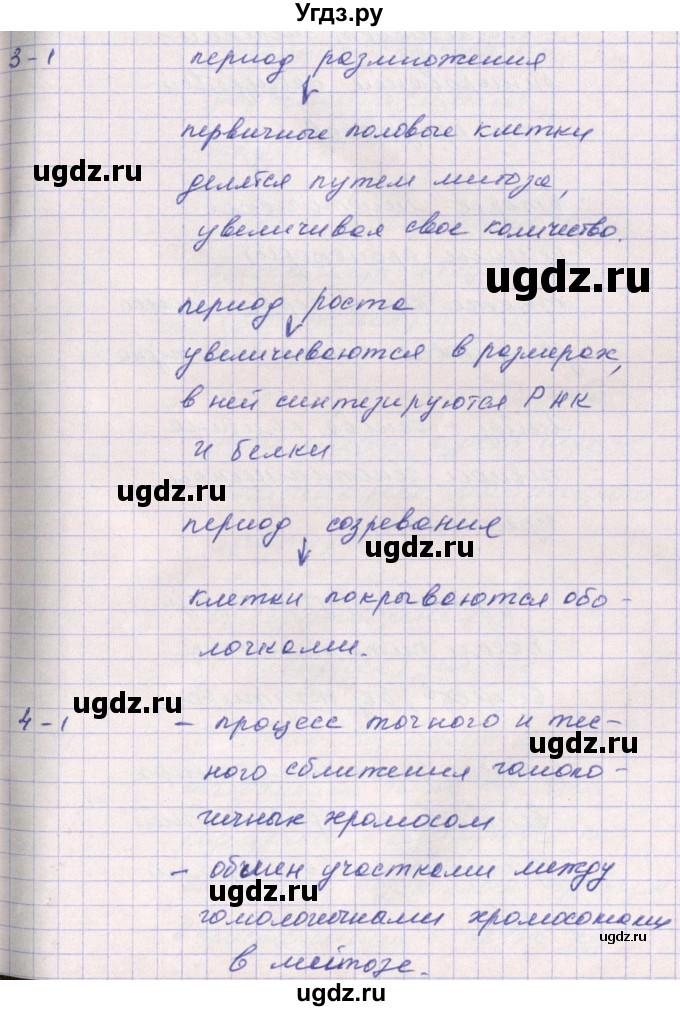 Угдз.ру
3-1 период размножения
↓
первичные половые клетки
ugdz.ru
делятся путем митоза,
увеличивая свое количество.
ugdz.ru
период роста
↓
увеличиваются в размерах,
в ней синтезируются РНК
и белки
ugdz.ru
период созревания
ugdz.ru
↓
клетки покрываются обо-
лочками.
ugdz.ru
4-1 - процесс точного и тес-
ugdz.ru
ного сближения гомоло-
гичных хромосом
- обмен участками между
ugdz.ru
гомологичными хромосомами
ugdz.ru
в мейозе.
ugdz.ru